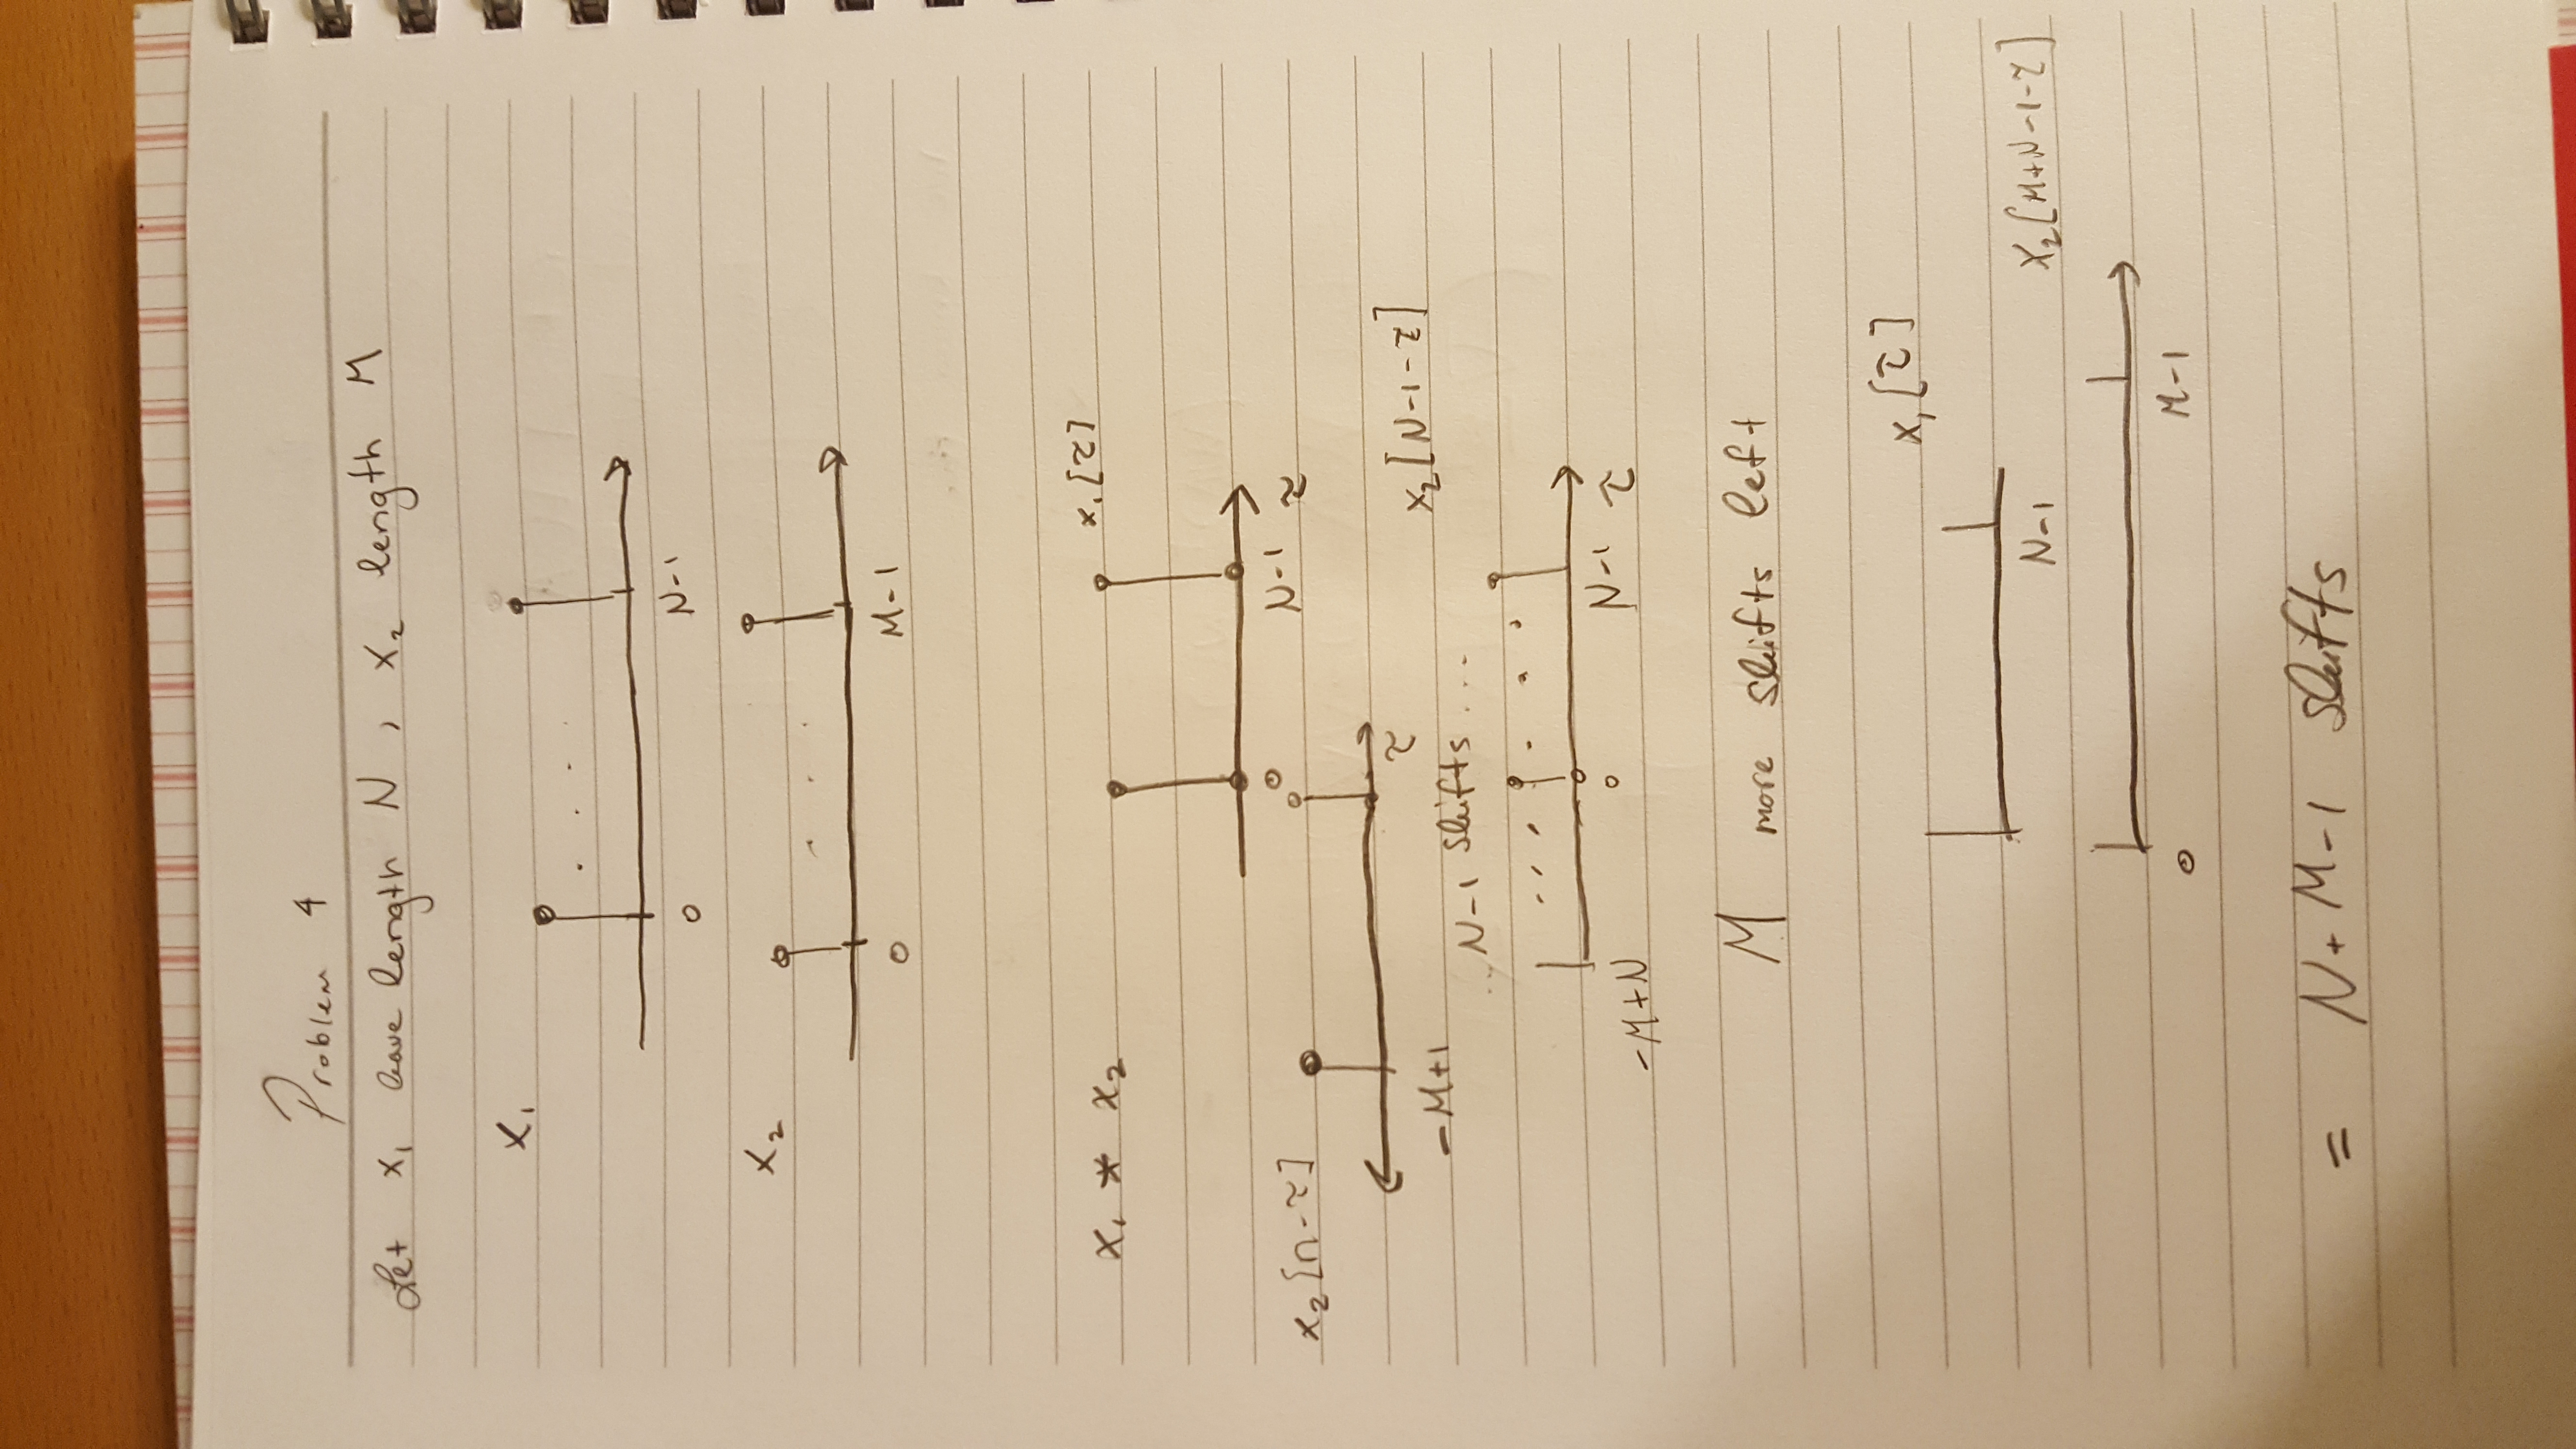 Problem 4
Let x₁ have length N, x₂ length M
x₁
0 N-1
x₂
0 M-1
x₁ * x₂ x₁[τ]
0 N-1 τ
x₂[n-τ]
τ
-M+1
x₂[N-1-τ]
...N-1 shifts...
-M+N 0 N-1 τ
M more shifts left
x₁[τ]
N-1
x₂[M+N-1-τ]
0 M-1
= N+M-1 shifts